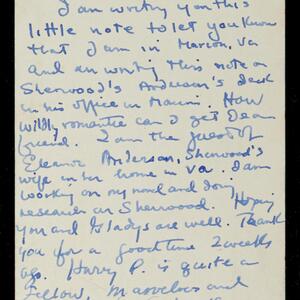 I am writing you this
little note to let you know
that I am in Marion, Va
and am writing this note on
Sherwood's Anderson's desk
in his office in Marion. How
wildly romantic can I get Dear
friend. I am the guest of
Eleanor Anderson, Sherwood's
wife in her home in Va. I am
working on my novel and doing
research on Sherwood. Hoping
you and Gladys are well. Thank
you for a good time 2 weeks
ago. Harry P. is quite a
fellow, marvelous and